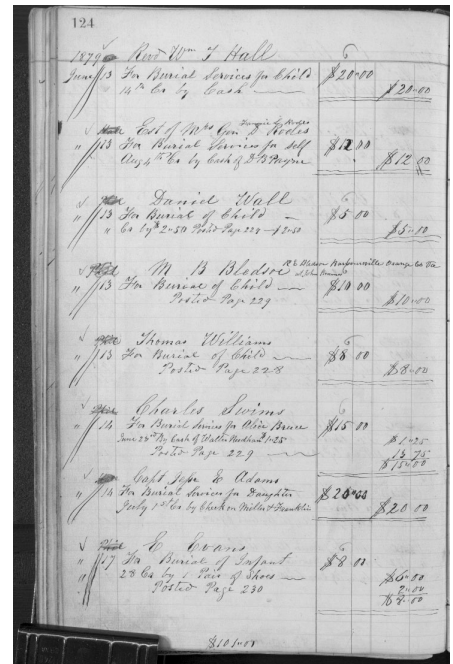 124
1879 Revd Wm T Hall
June 13 For Burial Services for Child $20.00
" 14th Cr by Cash $20.00
Est of Mrs Geo D Rodes
" 13 For Burial Services for Self $12.00
Aug 4th Cr by Cash of D B Payne $12.00
Daniel Wall
" 13 For Burial of Child $5.00
" Cr by 2.50 Posted Page 229 - $2.50 $5.00
M B Bledsoe Orange Co Va
" 13 For Burial of Child $10.00
Posted Page 229 $10.00
Thomas Williams
" 13 For Burial of Child $8.00
Posted Page 228 $8.00
Charles Swims
" 14 For Burial Services for Alice Bruce $15.00
June 23rd By Cash of Walter 1.25 $1.25
Posted Page 229 13.75
$15.00
Capt Jesse E Adams
" 14 For Burial Services for Daughter $20.00
July 1st Cr by Check on Miller & Franklin $20.00
E Evans
" 17 For Burial of Infant $8.00
" 28 Cr by 1 Pair of Shoes $6.00
Posted Page 230 2.00
$8.00
$101.00